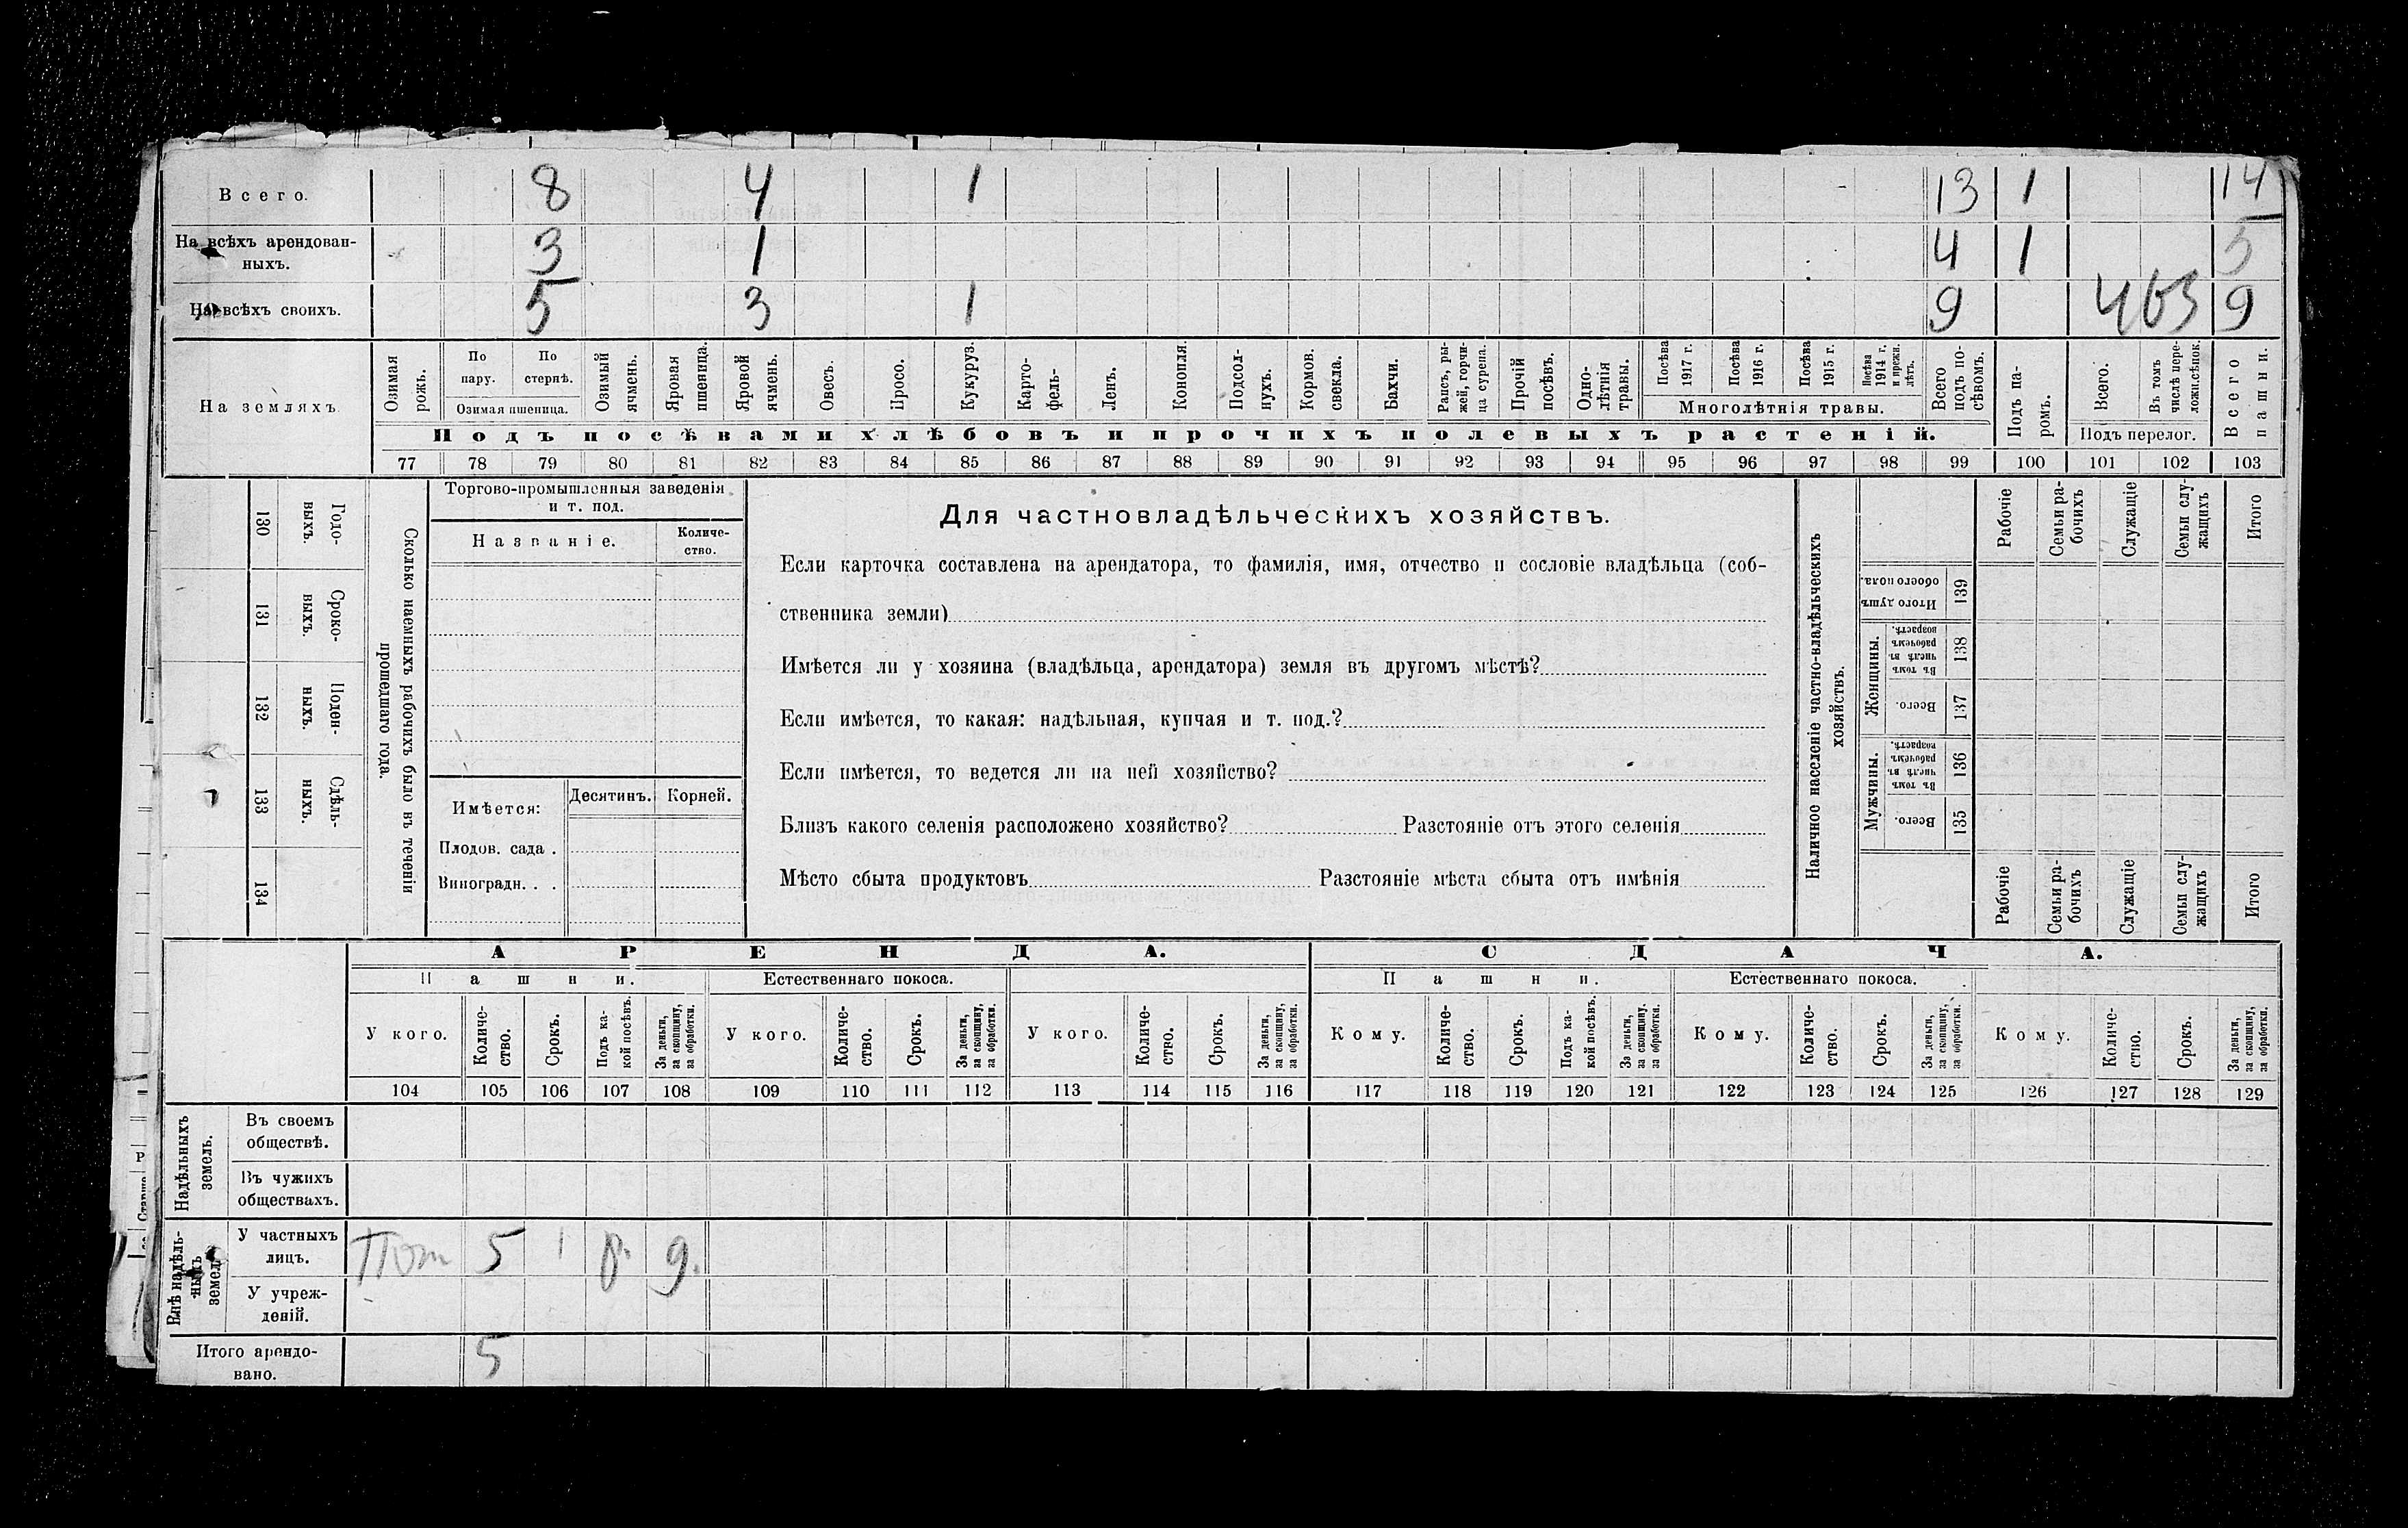 Всего. 8 4 1 13 1 14
На всѣхъ арендован-ныхъ. 3 1 4 1 5
На всѣхъ своихъ. 5 3 1 9 463 9
На земляхъ
Озимая рожь.
По пару.
По стернѣ.
Озимая пшеница.
Озимый ячмень.
Яровая пшеница.
Яровой ячмень.
Овесъ.
Просо.
Кукуруз.
Карто-фель-
Ленъ.
Конопля.
Подсол-нухъ.
Кормов. свекла.
Бахчи.
Рапсъ, ры-жей, горчи-ца сурепа.
Прочій посѣвъ.
Одно-лѣтнія травы.
Посѣва 1917 г.
Посѣва 1916 г.
Посѣва 1915 г.
Посѣва 1914 г. и прежн. лѣтъ.
Многолѣтнія травы.
Всего подъ по-сѣвомъ.
Подъ па-ромъ.
Всего.
Въ томъ числѣ пере-ложн. сѣнок.
Подъ перелог.
Всего пашни.
Подъ посѣвами хлѣбовъ и прочихъ полевыхъ растеній.
77 78 79 80 81 82 83 84 85 86 87 88 89 90 91 92 93 94 95 96 97 98 99 100 101 102 103
130 Годо-выхъ.
131 Сроко-выхъ.
132 Поден-ныхъ.
133 Сдѣль-ныхъ.
134
Сколько наемныхъ рабочихъ было въ теченіи
прошедшаго года.
Торгово-промышленныя заведенія
и т. под.
Названіе.
Количе-ство.
Имѣется:
Десятинъ. Корней.
Плодов. сада .
Виноградн. . .
Для частновладѣльческихъ хозяйствъ.
Если карточка составлена на арендатора, то фамилія, имя, отчество и сословіе владѣльца (соб-
ственника земли)
Имѣется ли у хозяина (владѣльца, арендатора) земля въ другомъ мѣстѣ?
Если имѣется, то какая: надѣльная, купчая и т. под.?
Если имѣется, то ведется ли на ней хозяйство?
Близъ какого селенія расположено хозяйство? Разстояніе отъ этого селенія
Мѣсто сбыта продуктовъ Разстояніе мѣста сбыта отъ имѣнія
Наличное населеніе частно-владѣльческихъ
хозяйствъ.
Рабочіе
Семьи ра-бочихъ
Служащіе
Семьи слу-жащихъ
Итого
Итого душъ обоего пола. 139
Женщины.
Въ томъ числѣ въ рабочемъ возрастѣ. 138
Всего. 137
Мужчины.
Въ томъ числѣ въ рабочемъ возрастѣ. 136
Всего. 135
Рабочіе
Семьи ра-бочихъ
Служащіе
Семьи слу-жащихъ
Итого
АРЕНДА. СДАЧА.
Пашни. Естественнаго покоса. Пашни. Естественнаго покоса.
У кого. Количе-ство. Срокъ. Подъ ка-кой посѣвъ. За деньги, за скопщину, за обработки.
У кого. Количе-ство. Срокъ. За деньги, за скопщину, за обработки.
У кого. Количе-ство. Срокъ. За деньги, за скопщину, за обработки.
Кому. Количе-ство. Срокъ. Подъ ка-кой посѣвъ. За деньги, за скопщину, за обработки.
Кому. Количе-ство. Срокъ. За деньги, за скопщину, за обработки.
Кому. Количе-ство. Срокъ. За деньги, за скопщину, за обработки.
104 105 106 107 108 109 110 111 112 113 114 115 116 117 118 119 120 121 122 123 124 125 126 127 128 129
Надѣльныхъ земель.
Въ своемъ обществѣ.
Въ чужихъ обществахъ.
Внѣ надѣль-ныхъ земель
У частныхъ лицъ. 5 1
У учреж-деній.
Итого арендо-вано. 5